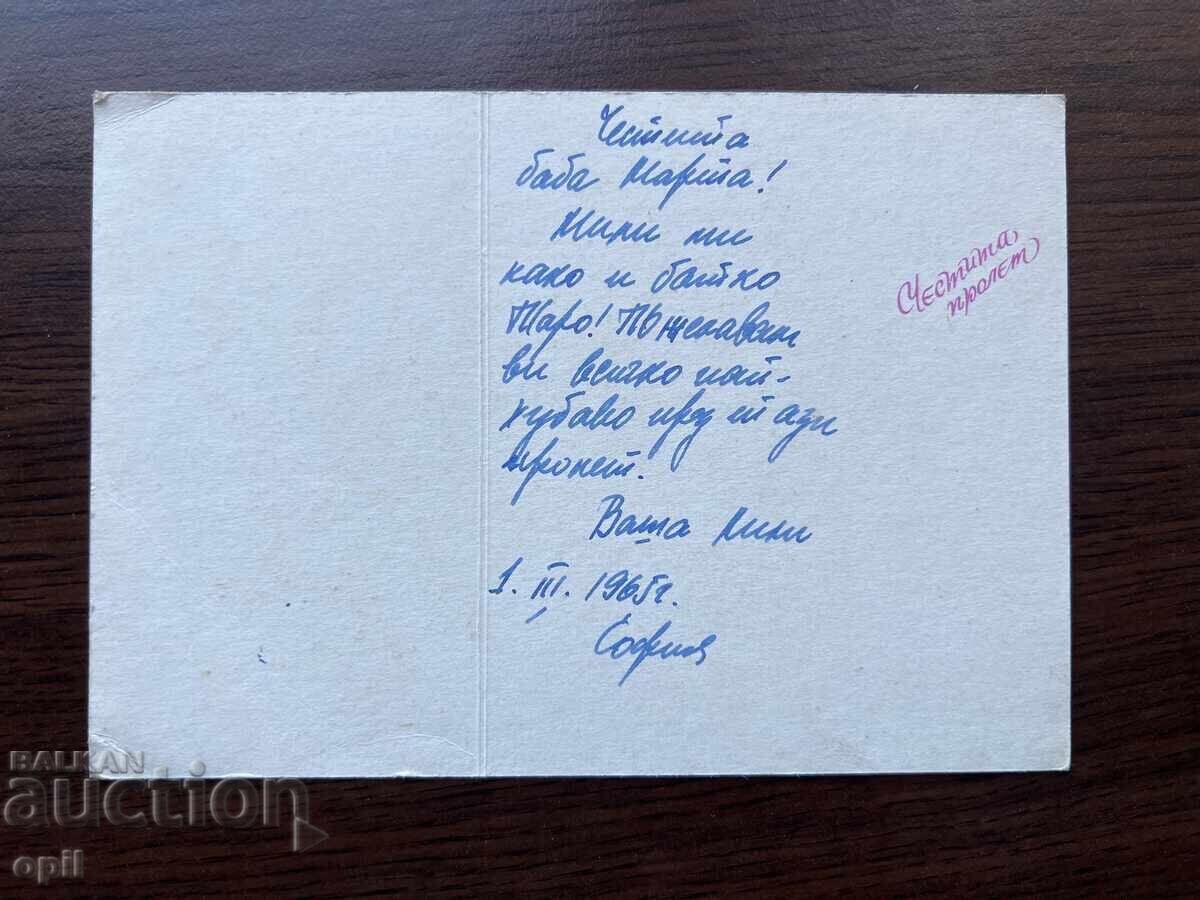 Честита
баба Марта!
Мили ми
како и батко
Таро! Пожелавам
ви всичко най-
хубаво през тази
пролет.
Ваша Лили
1. III. 1965г.
София
Честита
пролет
BALKAN
auction
opil